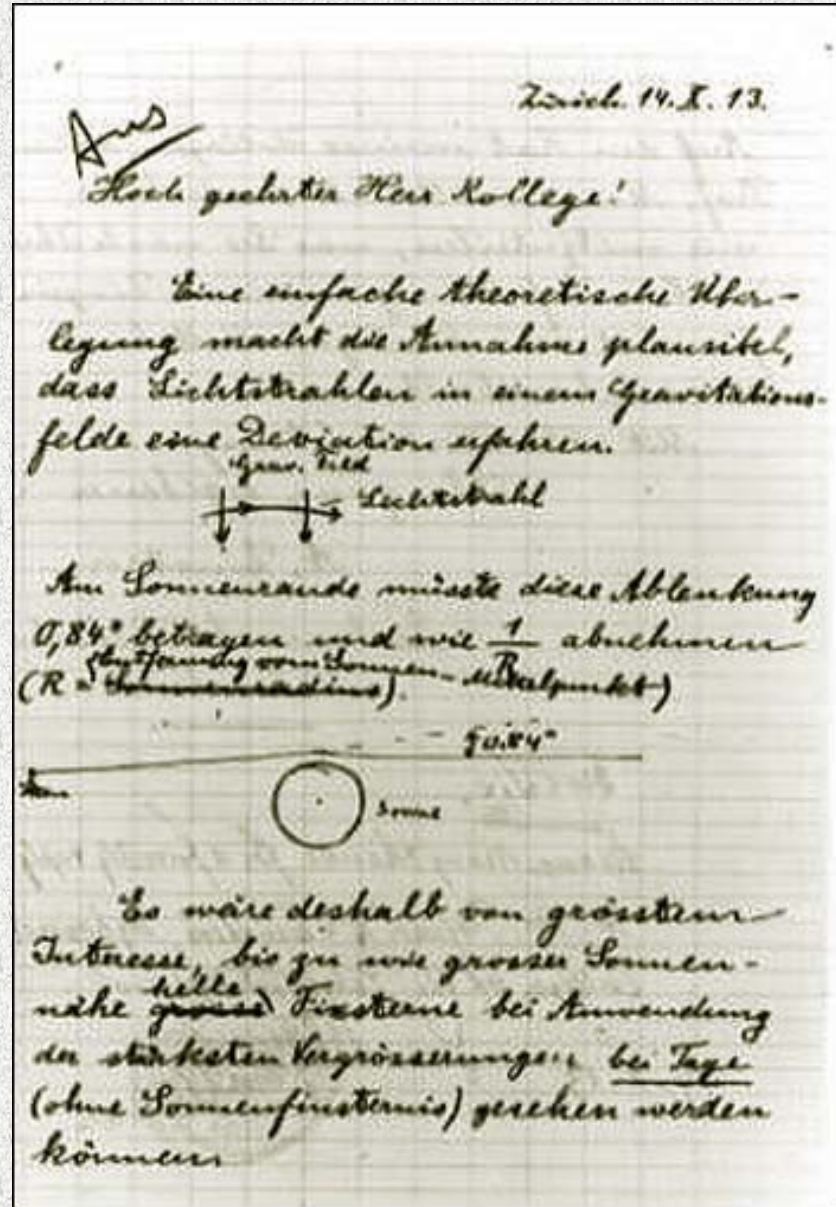 Zürich. 14. X. 13.
Aus
Hoch geehrter Herr Kollege!
Eine einfache theoretische Über-
legung macht die Annahme plausibel,
dass Lichtstrahlen in einem Gravitations-
felde eine Deviation erfahren.
Grav. Feld
Lichtstrahl
Am Sonnenrande müsste diese Ablenkung
0,84" betragen und wie 1/R abnehmen
(R = Entfernung vom Sonnen-Mittelpunkt)
Sonnenradius).
0.84"
Sonne
Es wäre deshalb von grösstem
Interesse, bis zu wie grosser Sonnen-
nähe grosse helle Fixsterne bei Anwendung
der stärksten Vergrösserungen bei Tage
(ohne Sonnenfinsternis) gesehen werden
können.